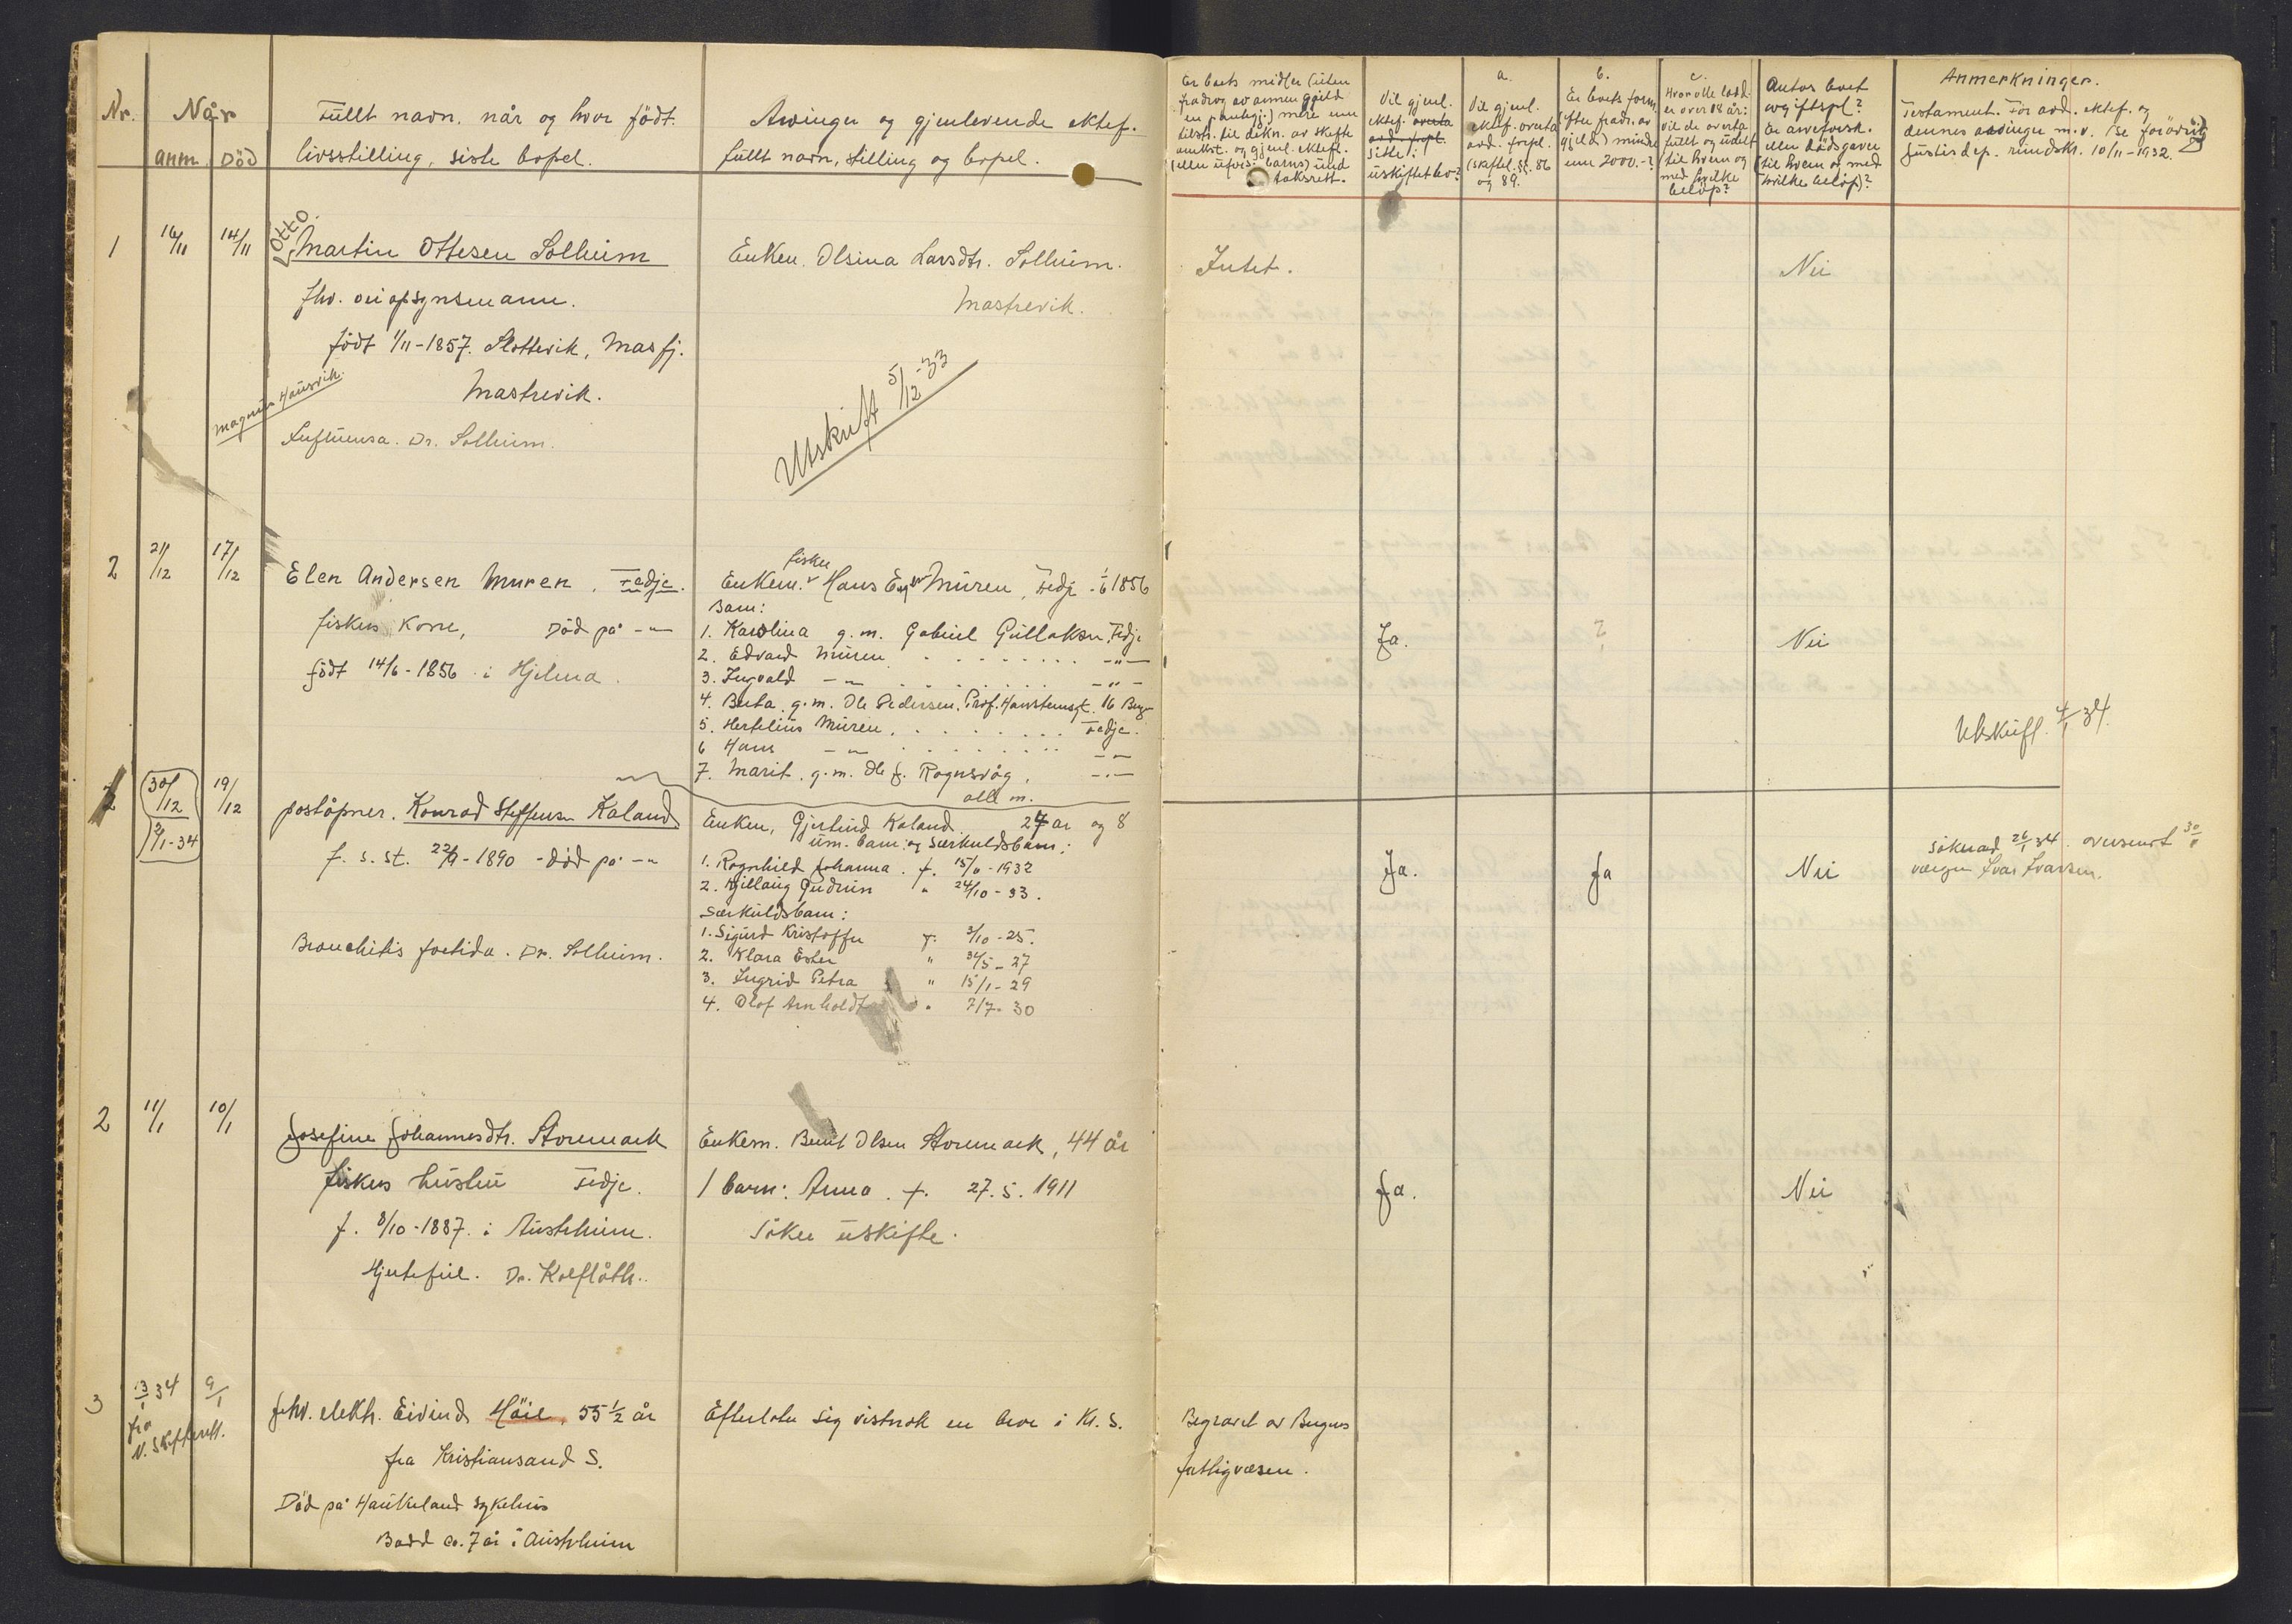 Nr. Når
anm. Död
Fullt navn, når og hvor födt.
livsstilling, siste bopel.
Arvinger og gjenlevende ektef.
fullt navn, stilling og bopel.
Er boets midler (uten
fradrag av annen gjeld
en pantegj.) mere enn
tilstr. til dekn. av skifte
omkst. og gjenl. ektef.
(eller uforsj. barns) und
taksrett.
Vil gjenl.
ektef. overta
avd. f.pl.
sitte i
uskiftet bo?
a.
Vil gjenl.
ektef. overta
avd. forpl.
(skiftel. §§. 86
og 89.
b.
Er boets form.
(efter fradr. av
gjeld) mindre
enn 2000.-?
c.
Hvor alle lodd.
er over 18 år:
vil de overta
fullt og udelt
(til hvem og
med hvilke
belöp?
Antas boet
avgiftspl?
Er arveforsk.
eller dödsgaver
(til hvem og med
hvilke belöp)?
Anmerkninger.
Testament. For avd. ektef. og
dennes arvinger m.v. (se forövrig
Justisdep. rundskr. 10/11-1932.
1 16/11 14/11
Otto
Martin Ottesen Solheim
fhv. opsynsmann.
födt 1/11-1857. Slottevik, Masfj.
Mastrevik.
Magnus Hausvik.
Influensa. Dr. Solheim.
Enken. Olsina Larsdtr. Solheim.
Mastrevik.
Utskrift 5/12-33
Intet.
Nei
2 21/12 17/12
Elen Andersen Muren. Fedje.
fiskers kone, Död på -"-
födt 14/6-1856 i Hjelma.
fisker
Enkem. Hans Muren, Fedje 1856
Barn:
1. Karolina g.m. Gabriel Gullaksen, Fedje
2. Edvard Muren -"-
3. Ingvald -"- -"-
4. Berta g.m. Ole Pedersen, Prof. Hansteensgt. 16 Bergen
5. Hertelius Muren. Fedje.
6 Hans -"- -"-
7. Marit. g.m. Ole J. Rognsvåg. -"-
alle m.
Ja.
?
Nei
Utskrift. 4/1 34.
30/12
2/1-34
19/12
poståpner. Konrad Steffensen Kaland
f. s. st. 22/9-1890 - död på -"-
Bronchitis foetida. Dr. Solheim.
Enken, Gjertrud Kaland. 27 år og 8
um. barn og særkuldsbarn:
1. Ragnhild Johanna. f. 15/6-1932
2. Kjellaug Gudrun " 24/10-33.
Særkuldsbarn:
1. Sigurd Kristoffer f. 3/10-25.
2. Klara Ester " 31/5-27
3. Ingrid Petra " 15/1-29
4. Olof Arnholdt " 7/7-30
Ja.
Ja
Nei
söknad 26/1 34. oversendt 30/1
vergen Ivar Ivarsen.
2 11/1 10/1
Josefine Johannesdtr. Storemark
fiskers hustru Fedje.
f. 8/10-1887. i Austrheim.
Hjertefeil. Dr. Kolflåth.
Enkem. Bernt Olsen Storemark, 44 år
1 barn: Anna. f. 27.5.1911
söker uskifte.
Ja.
Nei
3 13/1 34 9/1
fra
N. Skifterett.
fhv. elektr. Eivind Höie, 55 1/2 år
fra Kristiansand S.
Död på Haukeland sykehus
Bodd ca. 7 år i Austrheim
Efterlater sig vistnok en bror i Kr. S.
Begravet av Bergens
fattigvesen.